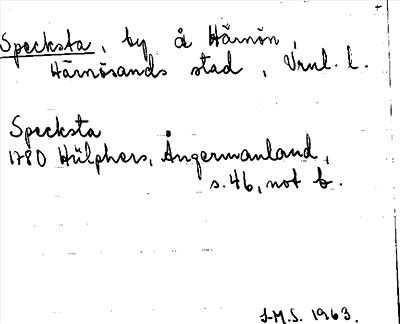 Specksta, by å Härnön,
Härnösands stad, Vrnl. l.
Specksta
1780 Hülphers, Ångermanland,
s. 46, not b.
I-M.S. 1963.